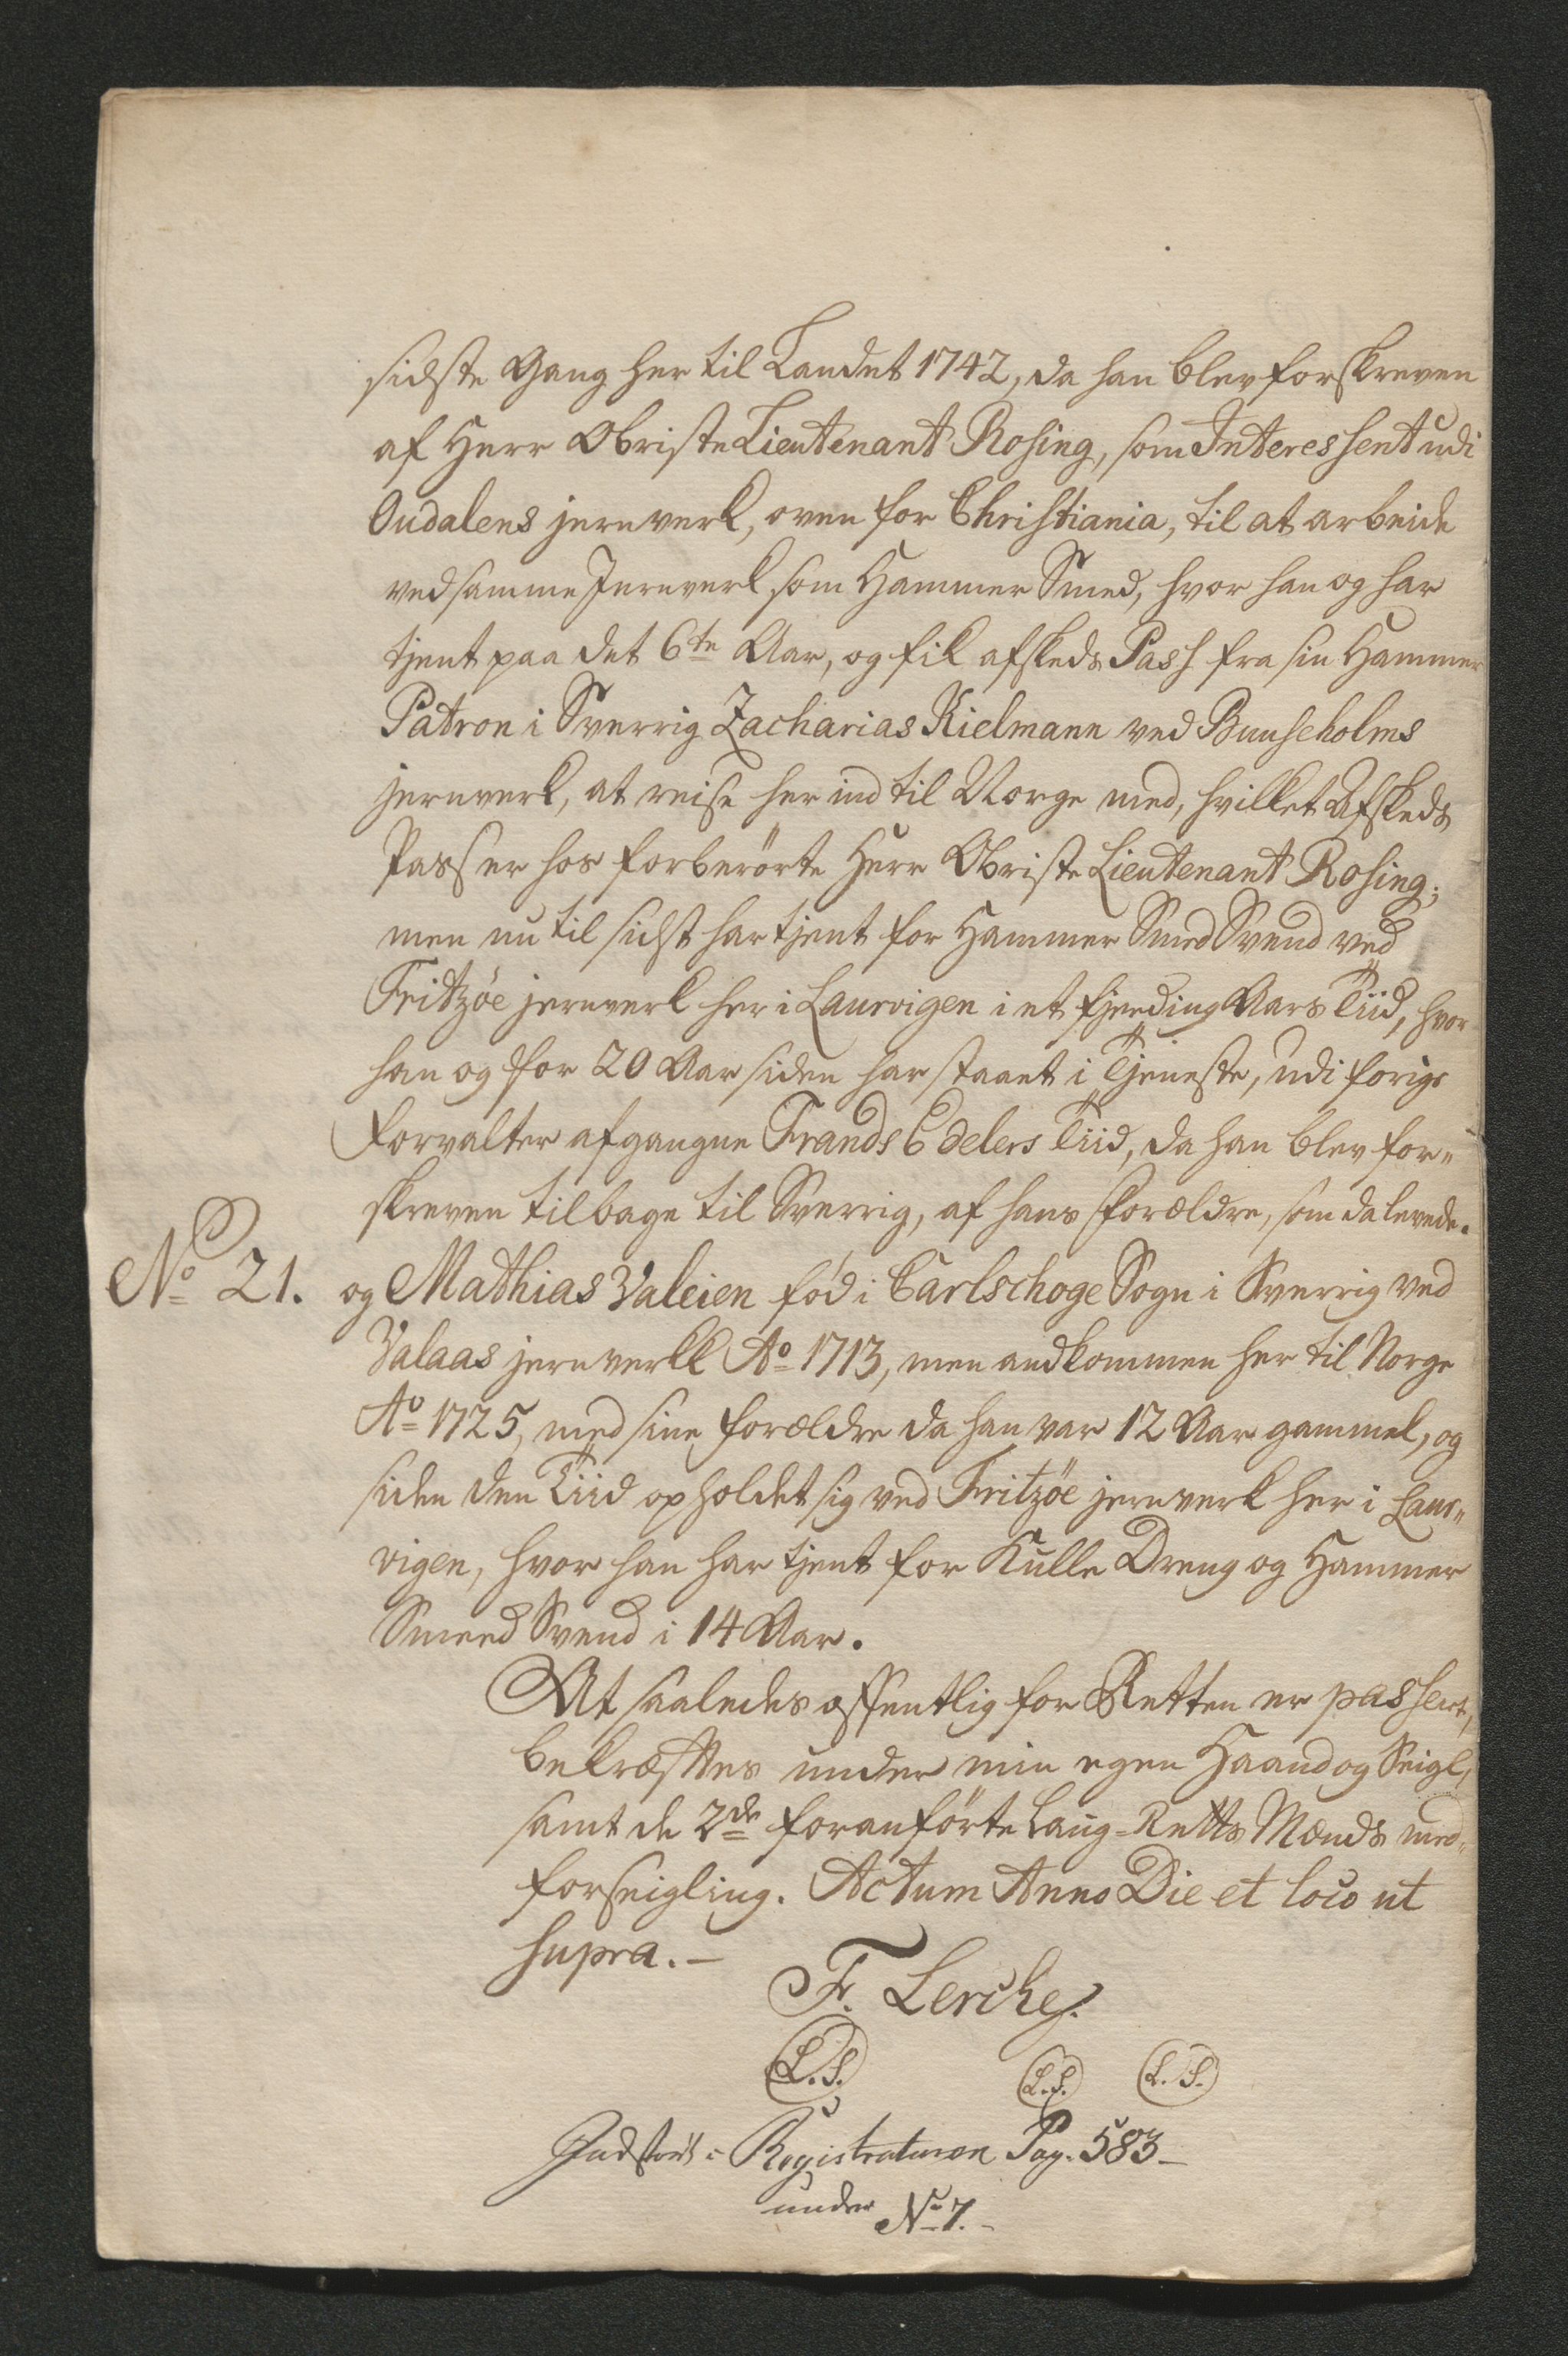 sidste Gang her til Landet 1742, da han blev forskreven
af Herr Obriste Lieutenant Rosing, som Interessent udi
Oudalens jernverk, oven for Christiania, til at arbeide
ved samme Jernverk som Hammer Smed, hvor han og har
tjent paa det 6te Aar, og fik afskeds Pass fra sin Hammer
Patron i Sverrig Zacharias Kielmann ved Bunseholms
jernverk, at reise her ind til Norge med, hvilket Afskeds
Pass er hos forberørte Herr Obriste Lieutenant Rosing;
men nu til sidst har tjent for Hammer Smed Svend ved
Fritzöe jernverk her i Laurvigen i et fjerding Aars Tiid, hvor
han og for 20 Aar siden har staaet i Tjeneste, udi forige
Forvalter afgangne Frands Edelers Tiid, da han blev for„
skreven tilbage til Sverrig, af hans Forældre, som da levede.
No 21. og Mathias Valeien fød i Carlschoge Sogn i Sverrig ved
Valaas jernverkk Ao 1713, men andkommen her til Norge
Ao 1725, med sine forældre da han var 12 Aar gammel, og
siden den Tiid opholdet sig ved Fritzöe jernverk her i Laur„
vigen, hvor han har tjent for Kulle Dreng og Hammer
Smeed Svend i 14 Aar.
At saaledes offentlig for Retten er passert,
bekræftes under min egen Haand og Seigl,
samt de 2de foranførte Laug-Retts Mænds med„
forseigling. Actum Anno Die et loco ut
supra.—
F. Lerche.
(L.S.) (L.S.) (L.S.)
Indført i Registraturen Pag. 583—
under No 7.—